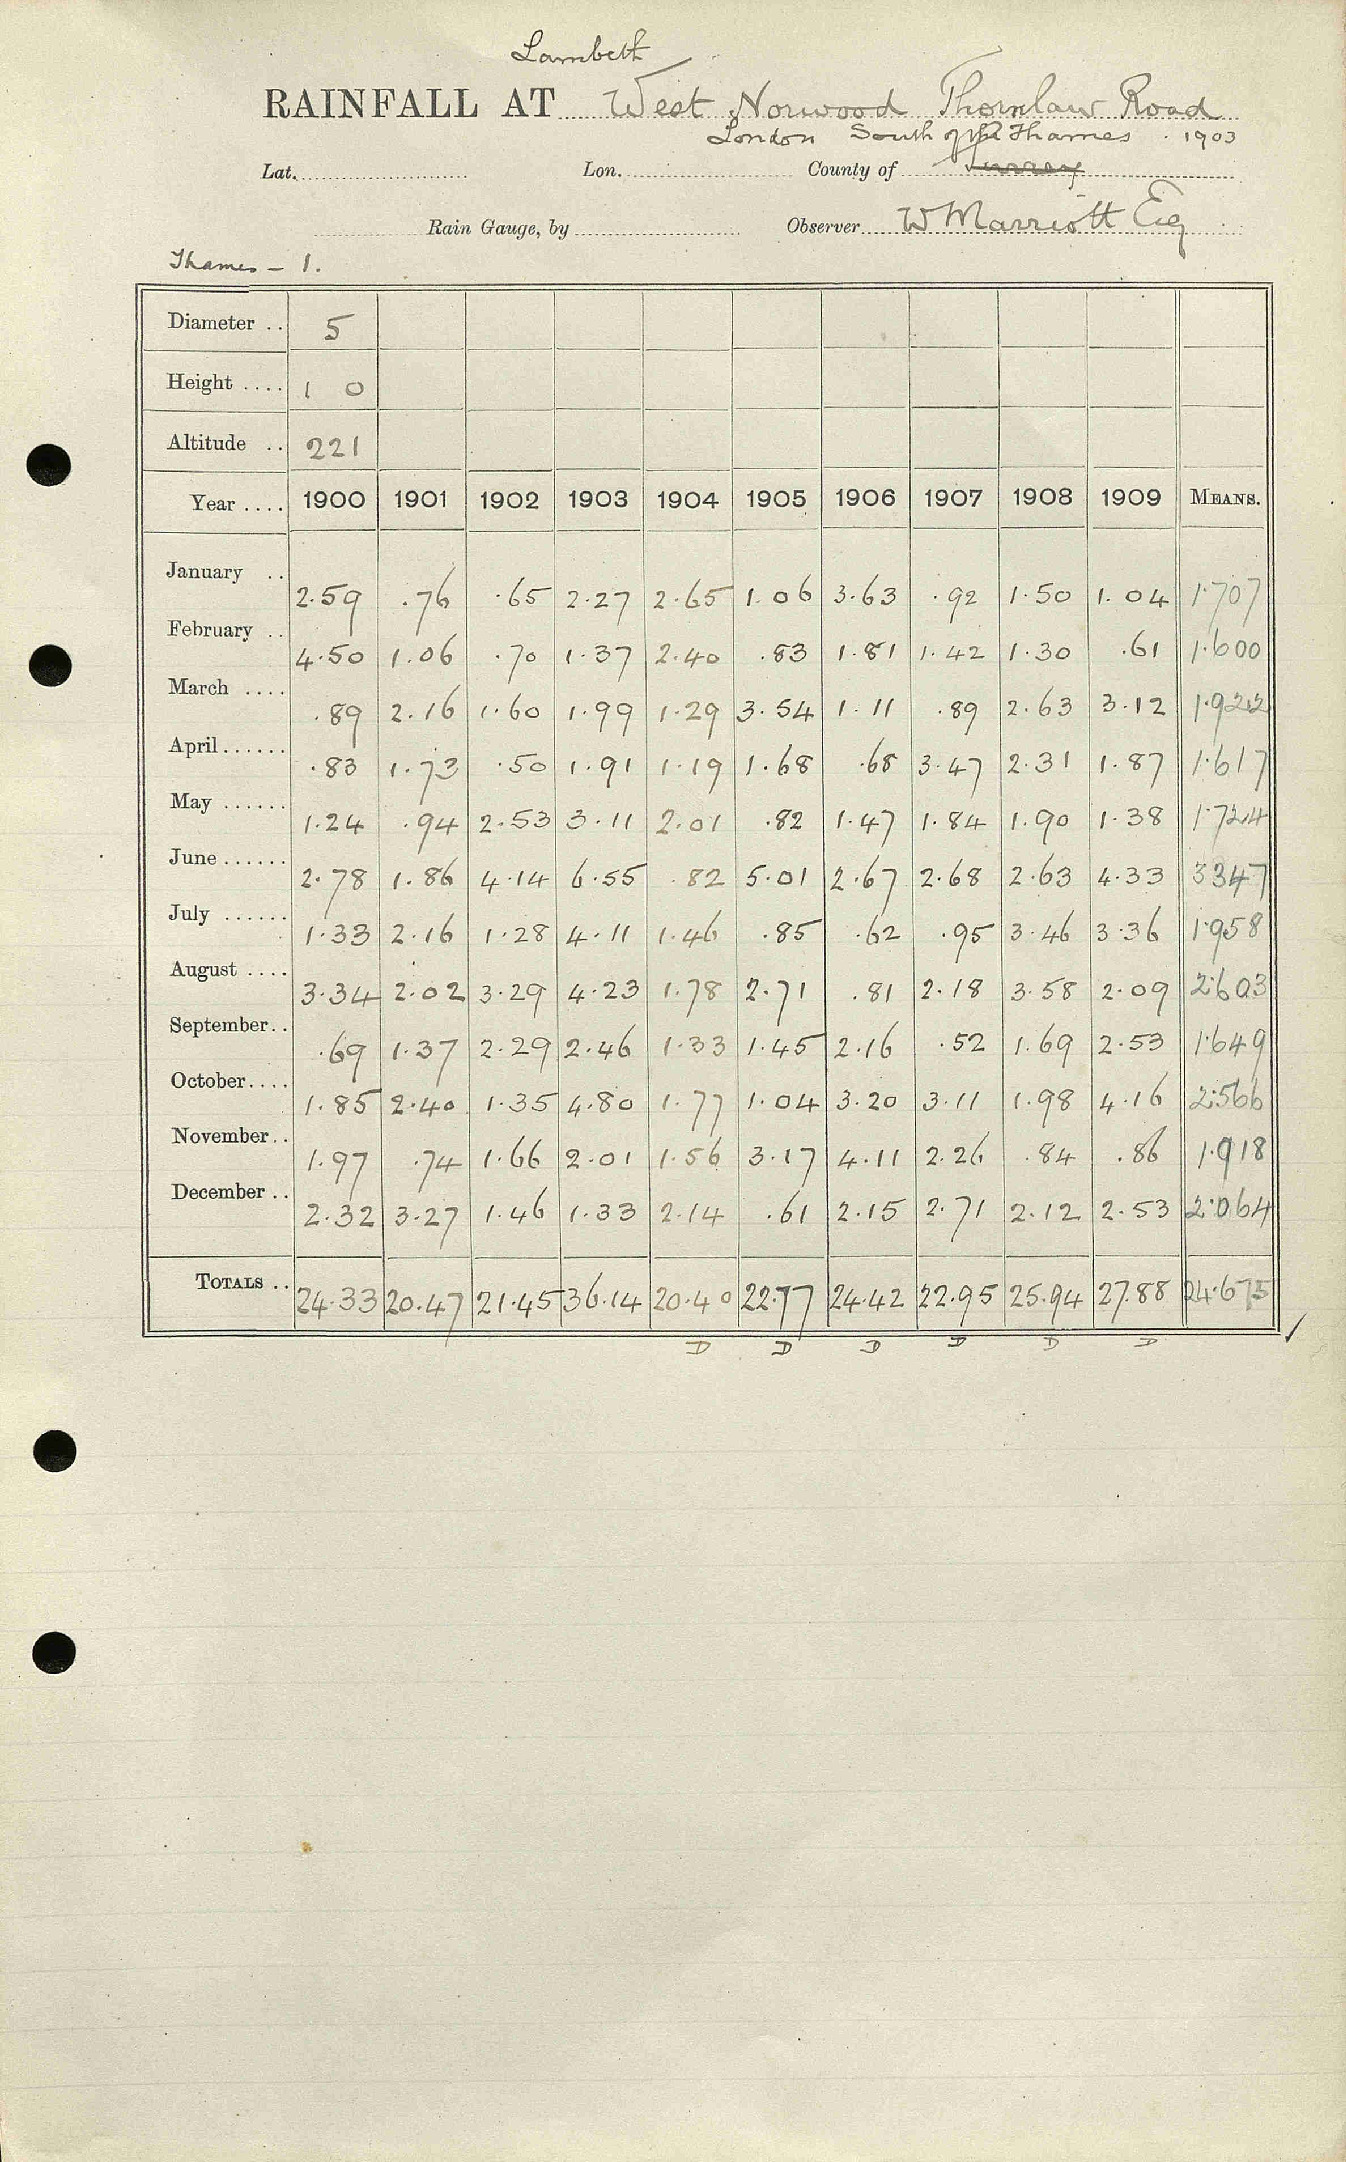 Lambeth
RAINFALL AT West Norwood Thornlaw Road
London South of the Thames . 1903
Lat. Lon. County of Surrey
Rain Gauge, by Observer W Marriott Esq
Thames - 1.
Diameter .. 5
Height .... 1 0
Altitude .. 221
Year .... 1900 1901 1902 1903 1904 1905 1906 1907 1908 1909 MEANS.
January .. 2.59 .76 .65 2.27 2.65 1.06 3.63 .92 1.50 1.04 1.707
February .. 4.50 1.06 .70 1.37 2.40 .83 1.81 1.42 1.30 .61 1.600
March .... .89 2.16 1.60 1.99 1.29 3.54 1.11 .89 2.63 3.12 1.922
April ...... .83 1.73 .50 1.91 1.19 1.68 .68 3.47 2.31 1.87 1.617
May ...... 1.24 .94 2.53 3.11 2.01 .82 1.47 1.84 1.90 1.38 1.724
June ...... 2.78 1.86 4.14 6.55 .82 5.01 2.67 2.68 2.63 4.33 3347
July ...... 1.33 2.16 1.28 4.11 1.46 .85 .62 .95 3.46 3.36 1.958
August .... 3.34 2.02 3.29 4.23 1.78 2.71 .81 2.18 3.58 2.09 2.603
September .. .69 1.37 2.29 2.46 1.33 1.45 2.16 .52 1.69 2.53 1.649
October .... 1.85 2.40 1.35 4.80 1.77 1.04 3.20 3.11 1.98 4.16 2.566
November .. 1.97 .74 1.66 2.01 1.56 3.17 4.11 2.26 .84 .86 1.918
December .. 2.32 3.27 1.46 1.33 2.14 .61 2.15 2.71 2.12 2.53 2.064
TOTALS .. 24.33 20.47 21.45 36.14 20.40 22.77 24.42 22.95 25.94 27.88 24.675
D D D D D D